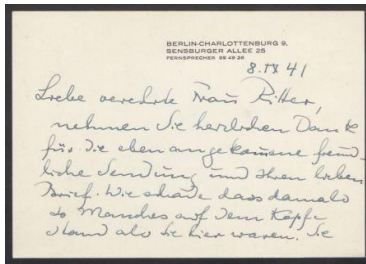 BERLIN-CHARLOTTENBURG 9,
SENSBURGER ALLEE 25
FERNSPRECHER 99 49 26
8. IX 41
Liebe verehrte Frau Ritter,
nehmen Sie herzlichen Dank
für die eben angekommene freund-
liche Sendung und Ihren lieben
Brief. Wie schade dass damals
so Manches auf dem Kopfe
stand als Sie hier waren. Sie